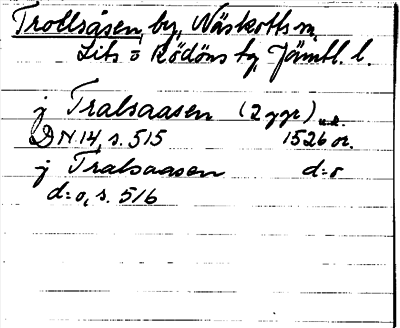 Trollsåsen, by, Näskotts sn,
Lits o Rödöns tg, Jämtl. l.
j Tralsaasen (2 ggr) u.k.
DN 14, s. 515 1526 or.
j Tralsaasen d:o
d:o, s. 516